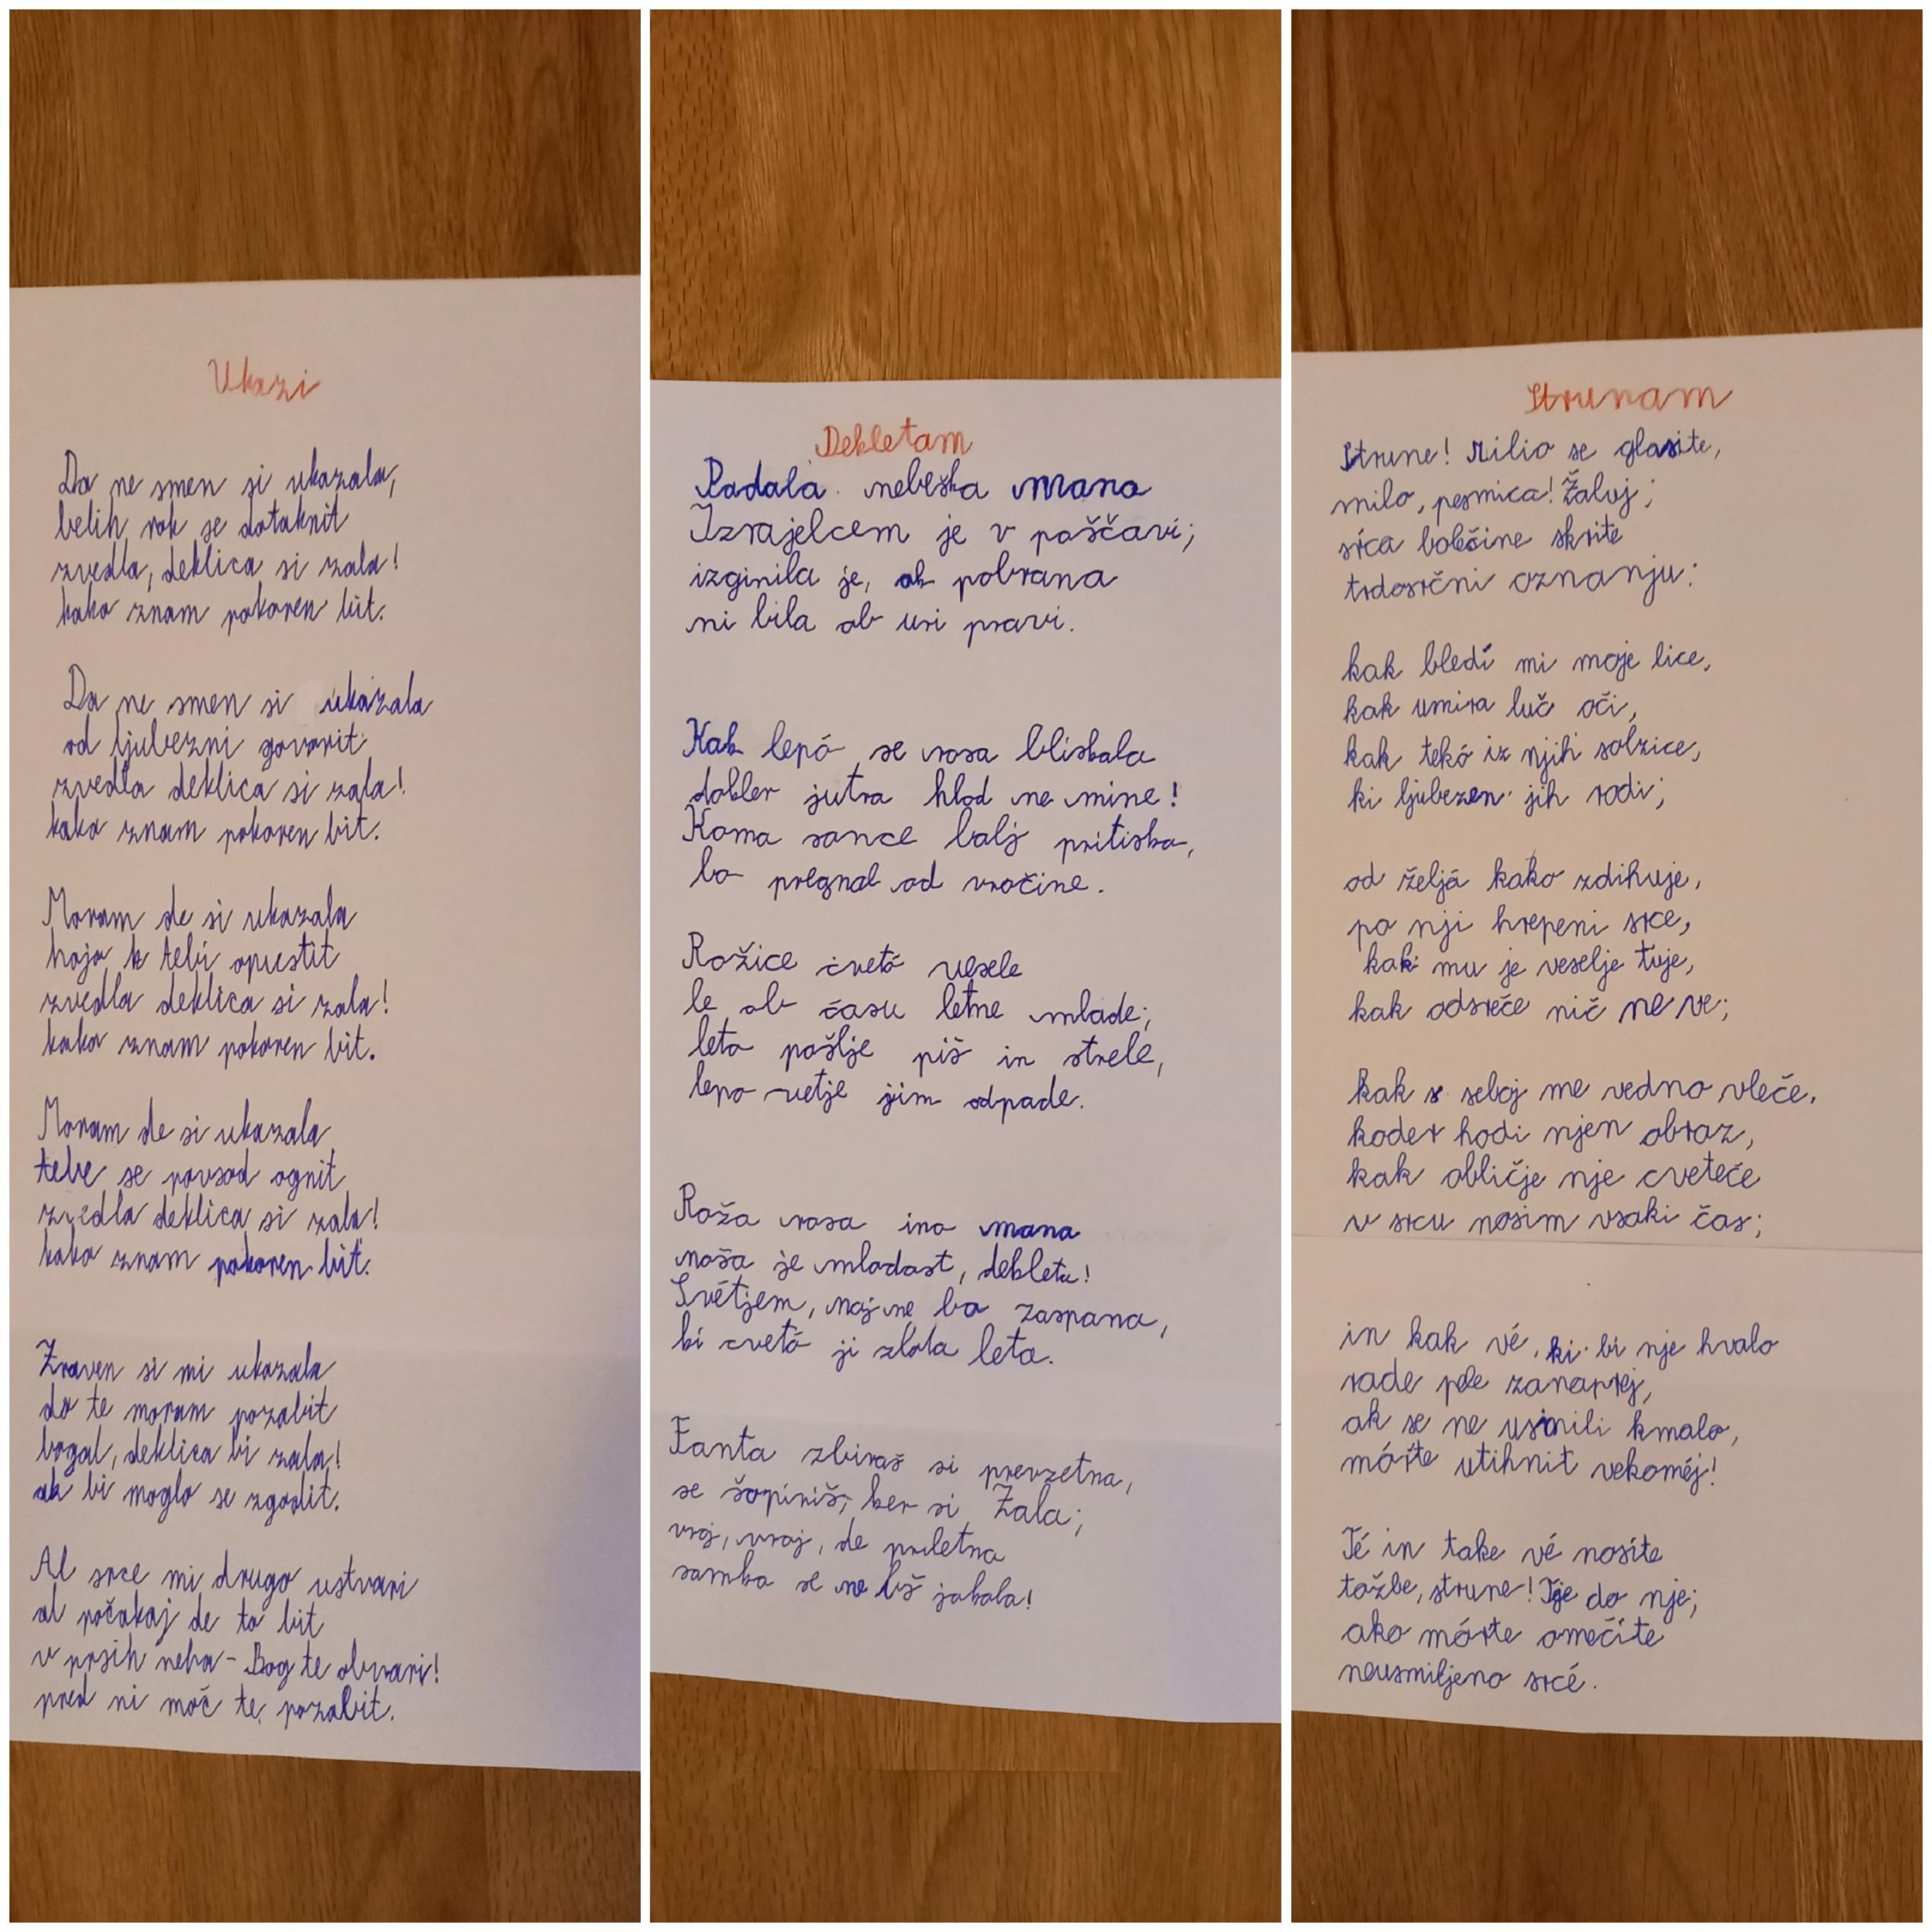 Ukazi
Da ne smen si ukazala,
belih rok se dotaknit
zvedla, deklica si zala!
kako znam pokoren bit.
Da ne smen si ukazala
od ljubezni govorit
zvedla deklica si zala!
kako znam pokoren bit.
Moram de si ukazala
hojo k tebi opustit
zvedla deklica si zala!
kako znam pokoren bit.
Moram de si ukazala
tebe se povsod ognit
zvedla deklica si zala!
kako znam pokoren bit.
Zraven si mi ukazala
do te moram pozabit
bogal, deklica bi zala!
ak bi moglo se zgodit.
Al srce mi drugo ustvari
al počakaj de to bit
v prsih neha - Bog te obvari!
pred ni moč te pozabit.
Dekletam
Padala nebeška mana
Izrajelcem je v poščavi;
izginila je, ak pobrana
ni bila ob uri pravi.
Kak lepó se rosa bliska
dokler jutra hlad ne mine!
Koma sonce bolj pritiska,
bo pregnal od vročine.
Rožice cvetó vesele
le ob času letne mlade;
leto pošlje piš in strele,
lepo vetje jim odpade.
Roža rosa ino mana
naša je mladost, dekleta!
Svétjem, naj ne bo zaspana,
ki cvetó ji zlata leta.
Fanta zbiraš si prevzetna,
se šopiriš, ker si Žala;
vraj, vraj, de priletna
samka se ne bš jokala!
Strunam
Strune! Milio se glasite,
milo, pesmica! Žaluj;
sŕca bolečine skrite
trdosrčni oznanju:
kak bledí mi moje lice,
kak umira luč oči,
kak tekó iz njih solzice,
ki ljubezen jih rodi;
od željá kako zdihuje,
po nji hrepeni srce,
kak mu je veselje tuje,
kak odsreče nič ne ve;
kak s seboj me vedno vleče,
koder hodi njen obraz,
kak obličje nje cveteče
v srcu nosim vsaki čas;
in kak vé, ki bi nje hvalo
rade pele zanaprej,
ak se ne usmili kmalo,
mórte utihnit vekoméj!
Té in take vé nosíte
tožbe, strune! Tje do nje;
ako mórte omečíte
neusmiljeno srcé.